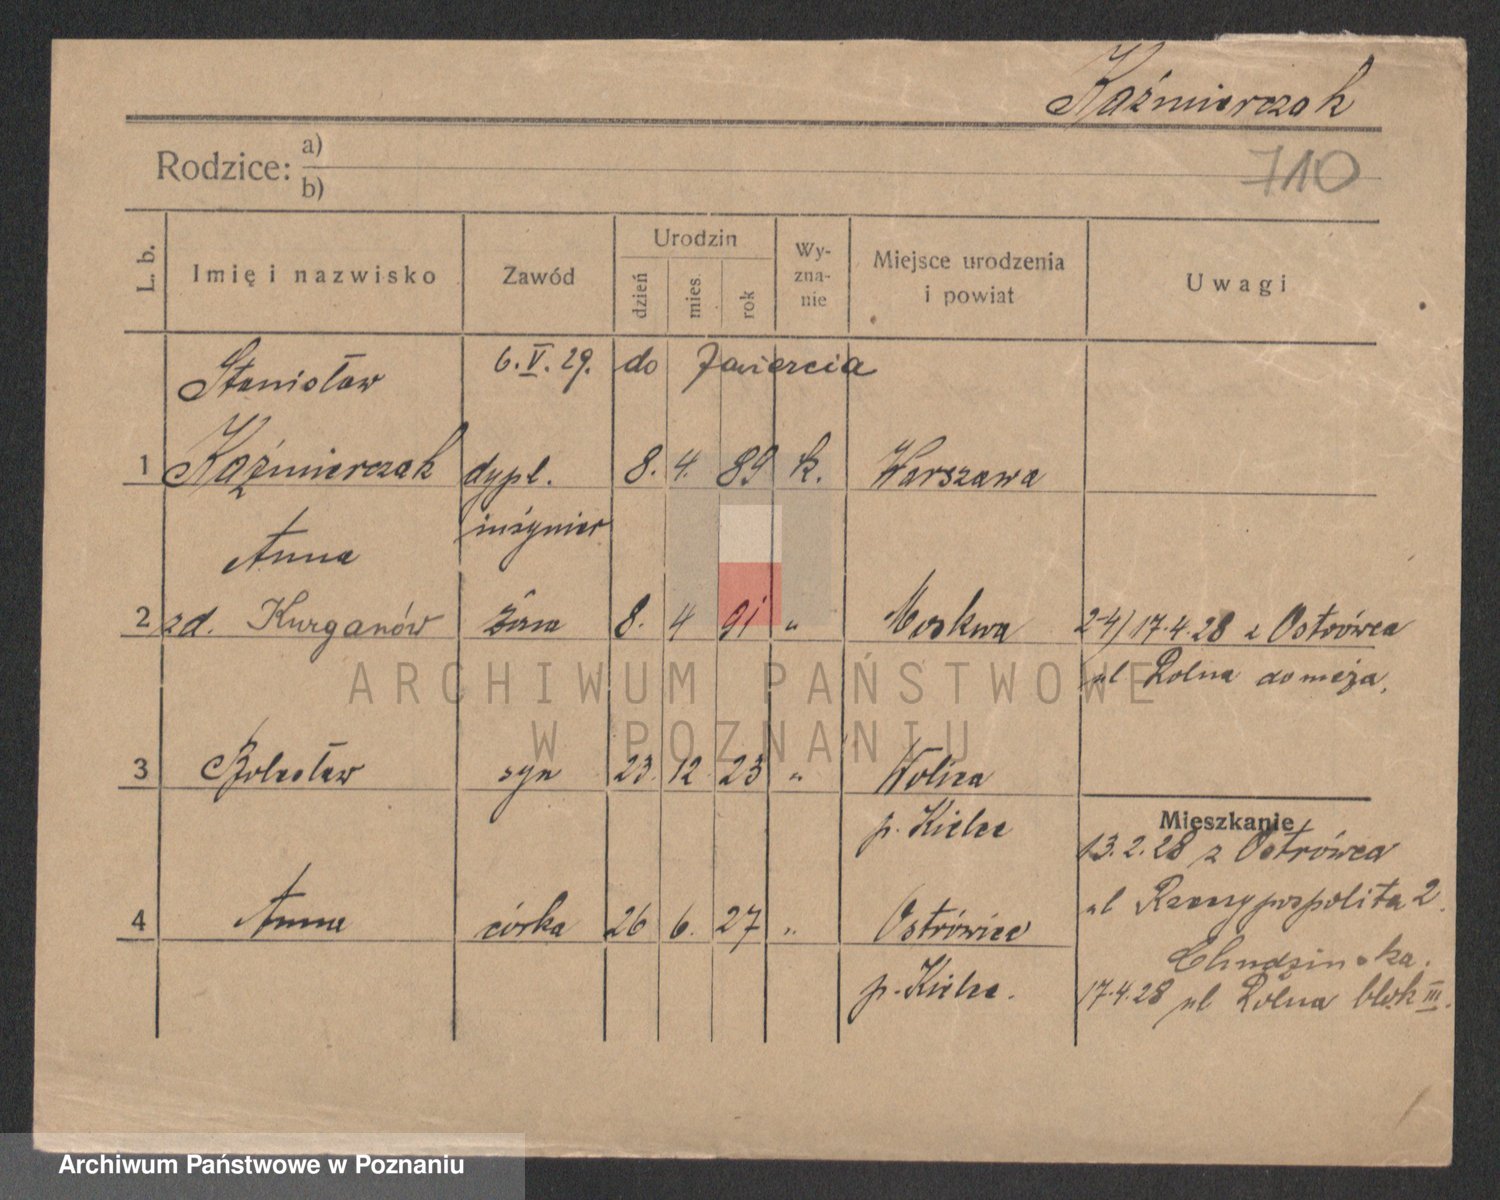 Kaźmierczak
Rodzice: a)
b)
710
L. b.
Imię i nazwisko
Zawód
Urodzin
dzień
mies.
rok
Wy-
zna-
nie
Miejsce urodzenia
i powiat
Uwagi
Stanisław 6.V.29. do Zawiercia
1 Kaźmierczak dypl. 8. 4. 89 k. Warszawa
inżynier
Anna
2 zd. Kurganów żona 8. 4 91 " Moskwa 2-4) 17.4.28 z Ostrówca
ul Rolna do męża.
ARCHIWUM PAŃSTWOWE
W POZNANIU
3 Bolesław syn 23. 12 23 " Wolica
p. Kielce
Mieszkanie
13.2.28 z Ostrówca
4 Anna córka 26 6. 27 " Ostrówiec
ul Rzeczypospolita 2.
p. Kielce.
17.4.28 ul Rolna blok III.
Archiwum Państwowe w Poznaniu